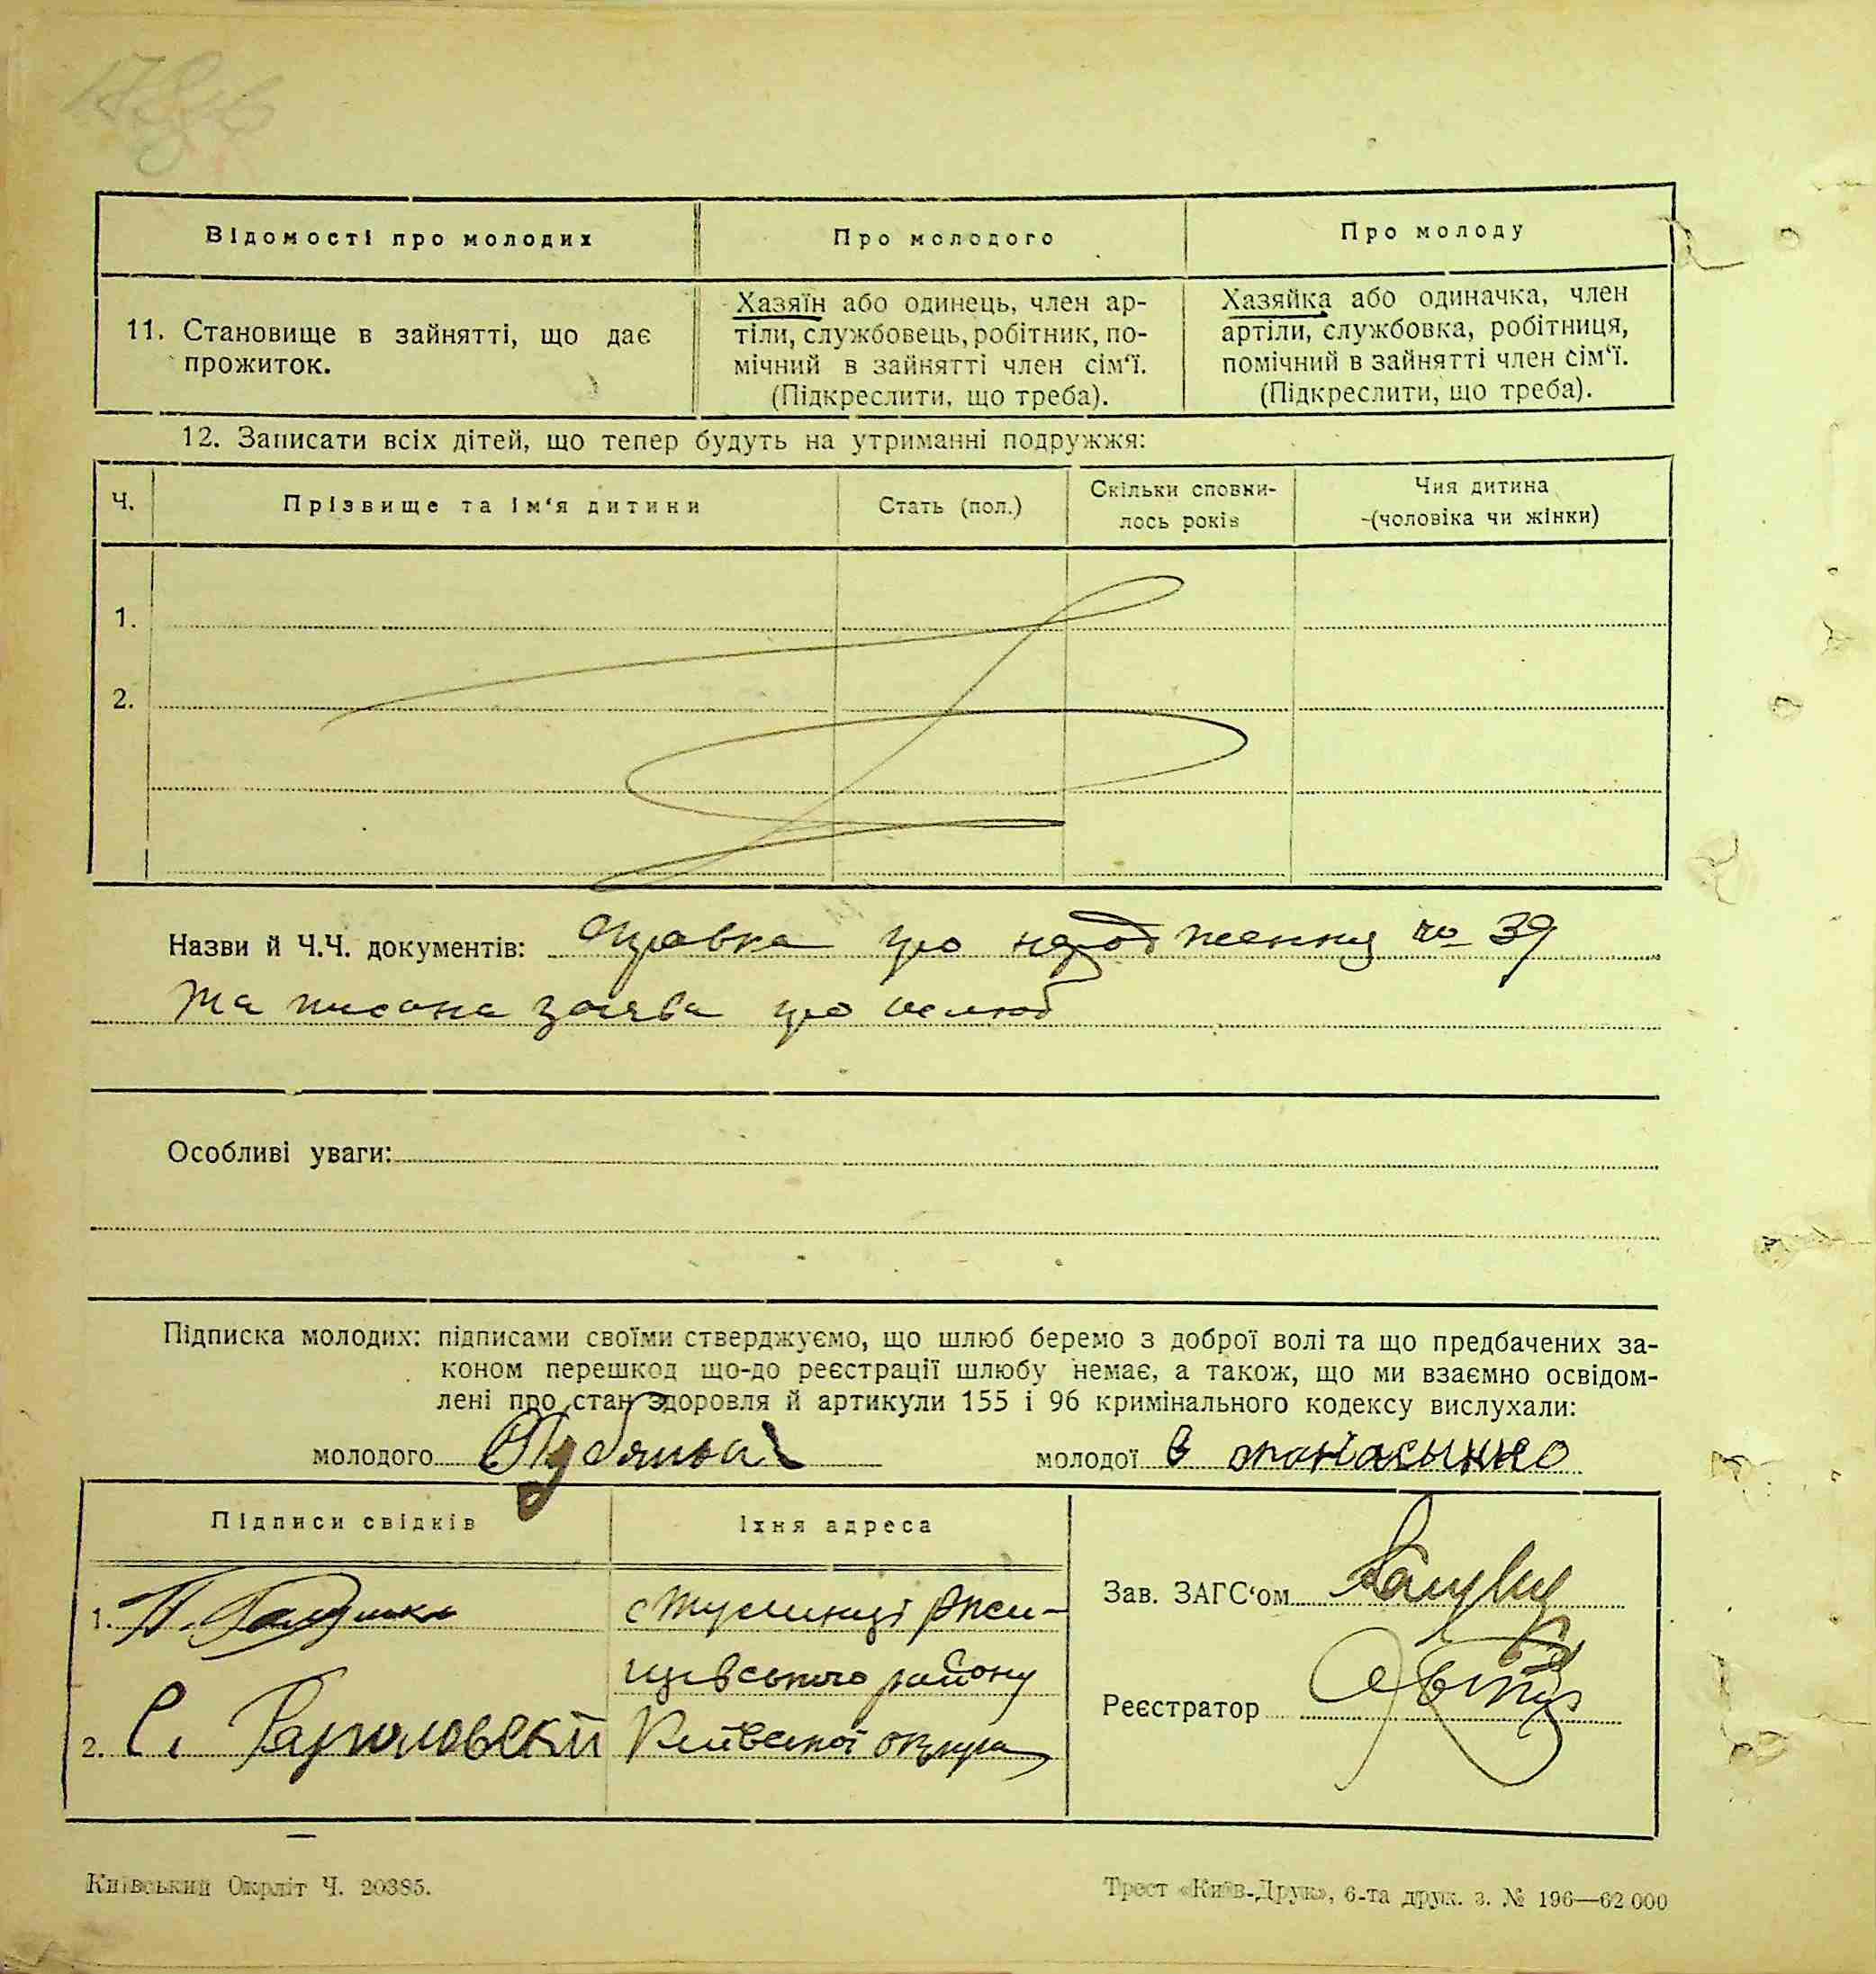 Відомості про молодих
Про молодого
Про молоду
11. Становище в зайнятті, що дає
прожиток.
Хазяїн або одинець, член ар-
тіли, службовець, робітник, по-
мічний в зайнятті член сім‘ї.
(Підкреслити, що треба).
Хазяйка або одиначка, член
артіли, службовка, робітниця,
помічний в зайнятті член сім‘ї.
(Підкреслити, що треба).
12. Записати всіх дітей, що тепер будуть на утриманні подружжя:
Ч.
Прізвище та ім‘я дитини
Стать (пол.)
Скільки сповни-
лось років
Чия дитина
(чоловіка чи жінки)
1.
2.
Назви й Ч.Ч. документів: справка про народження № 39
та писана заява про шлюб
Особливі уваги:
Підписка молодих: підписами своїми стверджуємо, що шлюб беремо з доброї волі та що предбачених за-
коном перешкод що-до реєстрації шлюбу немає, а також, що ми взаємно освідом-
лені про стан здоровля й артикули 155 і 96 кримінального кодексу вислухали:
молодого
молодої
Підписи свідків
Їхня адреса
1.
с Стугинці Ржи-
щівського району
2. С.
Київської округи
Зав. ЗАГС‘ом
Реєстратор
Київський Окрліт Ч. 20385.
Трест «Київ-Друк», 6-та друк. з. № 196—62 000